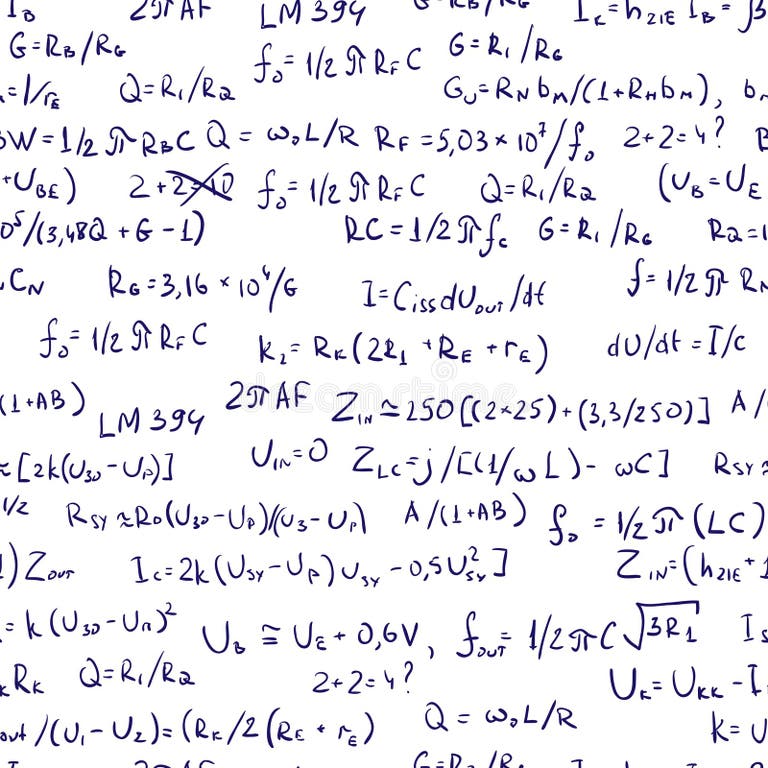 I_B 2πAF LM 394 I_K=h_21E I_B=β
G=R_B/R_G f_0=1/2πR_F C G=R_1/R_G
=1/r_E Q=R_1/R_2 G_U=R_N b_M/(1+R_H b_M), b
BW=1/2πR_B C Q=ω_0L/R R_F=5,03×10^7/f_0 2+2=4? B
+U_BE) 2+2=10 f_0=1/2πR_F C Q=R_1/R_2 (U_B=U_E
0^5/(3,48Q+G-1) RC=1/2πf_c G=R_1/R_G R2=1
C_N R_G=3,16×10^4/G I=C_iss dU_out/dt f=1/2πR_N
f_0=1/2πR_F C k_2=R_K(2R_1+R_E+r_E) dU/dt=I/c
(1+AB) LM 394 2πAF Z_IN≃250[(2×25)+(3,3/250)] A/
≈[2k(U_30-U_p)] U_IN=0 Z_LC=j/[(1/ωL)-ωC] R_SY≈
1/2 R_SY≈R_0(U_30-U_p)/(U_3-U_p) A/(1+AB) f_0=1/2π(LC)
) Z_OUT I_C=2k(U_SY-U_p)U_SY-0,5U_SY^2] Z_IN=(h_21E+1
=k(U_30-U_n)^2 U_B≅U_E+0,6V, f_OUT=1/2πC√3R_1 I_S
R_K Q=R_1/R_2 2+2=4? U_K=U_KK-I
out/(U_1-U_2)=(R_K/2(R_E+r_E) Q=ω_0L/R k=U